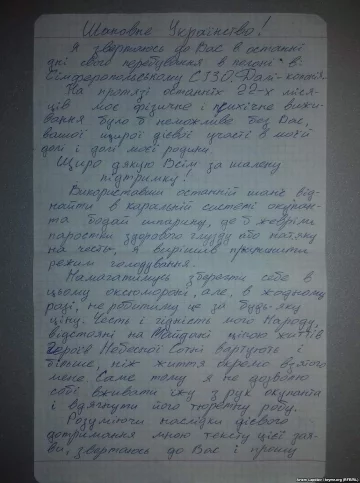 Шановне Українство!
Я звертаюсь до Вас в останні
дні свого перебування в пеклі в
Сімферопольському СІЗО. Далі-колонія.
На протязі останніх 20-х міся-
ців моє фізичне і психічне вижи-
вання було б неможливе без Вас,
вашої щирої дієвої участі в моїй
долі і долі моєї родини.
Щиро дякую Всім за шалену
підтримку!
Використавши останній шанс від-
найти в каральній системі окупан-
та бодай шпарину, де б жевріли
паростки здорового глузду або натяку
на честь, я вирішив припинити
режим голодування.
Намагатимусь зберегти себе в
цьому оксюмороні, але, в жодному
разі, не робитиму це за будь-яку
ціну. Честь і гідність мого Народу,
відстояні на Майдані ціною життів
Героїв Небесної Сотні вартують і
більше, ніж життя окремо взятого
мене. Саме тому я не дозволю
собі вживати їжу з рук окупанта
і вдягнути його тюремну робу.
Розуміючи наслідки дієвого
дотримання мною тексту цієї зая-
ви, звертаюсь до Вас і прошу